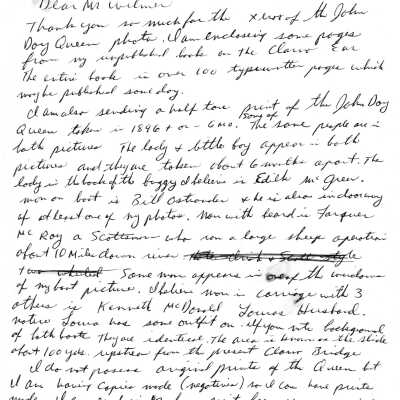 Dear Mr Wilmer
Thank you so much for the xerox of the John
Day Queen photo. I am enclosing some pages
from my unpublished book on the Clarno Era
The entire book is over 100 typewritten pages which
maybe published some day.
I am also sending a half tone print of the John Day
Queen taken in 1896 + or - 6 mo. Some of the same people are in
both pictures The lady & little boy appear in both
pictures and they are taken about 6 months apart. The
lady in the back of the buggy I believe is Edith McGreer.
man on boat is Bill Ostrander & he is also in doorway
of at least one of my photos. Man with beard is Farquer
McRay a Scotsman who ran a large sheep operation
about 10 Miles down river
Same man appears in one of the windows
of my boat picture. I believe man in carriage with 3
others is Kenneth McDonald Lomas Husband.
notice has same outfit on. If you note background
of both boats They are identical. The area is known as the slide
about 100 yds. upstream from the present Clarno Bridge
I do not possess original prints of the Queen but
I am having Copies made (negatives) so I can have prints